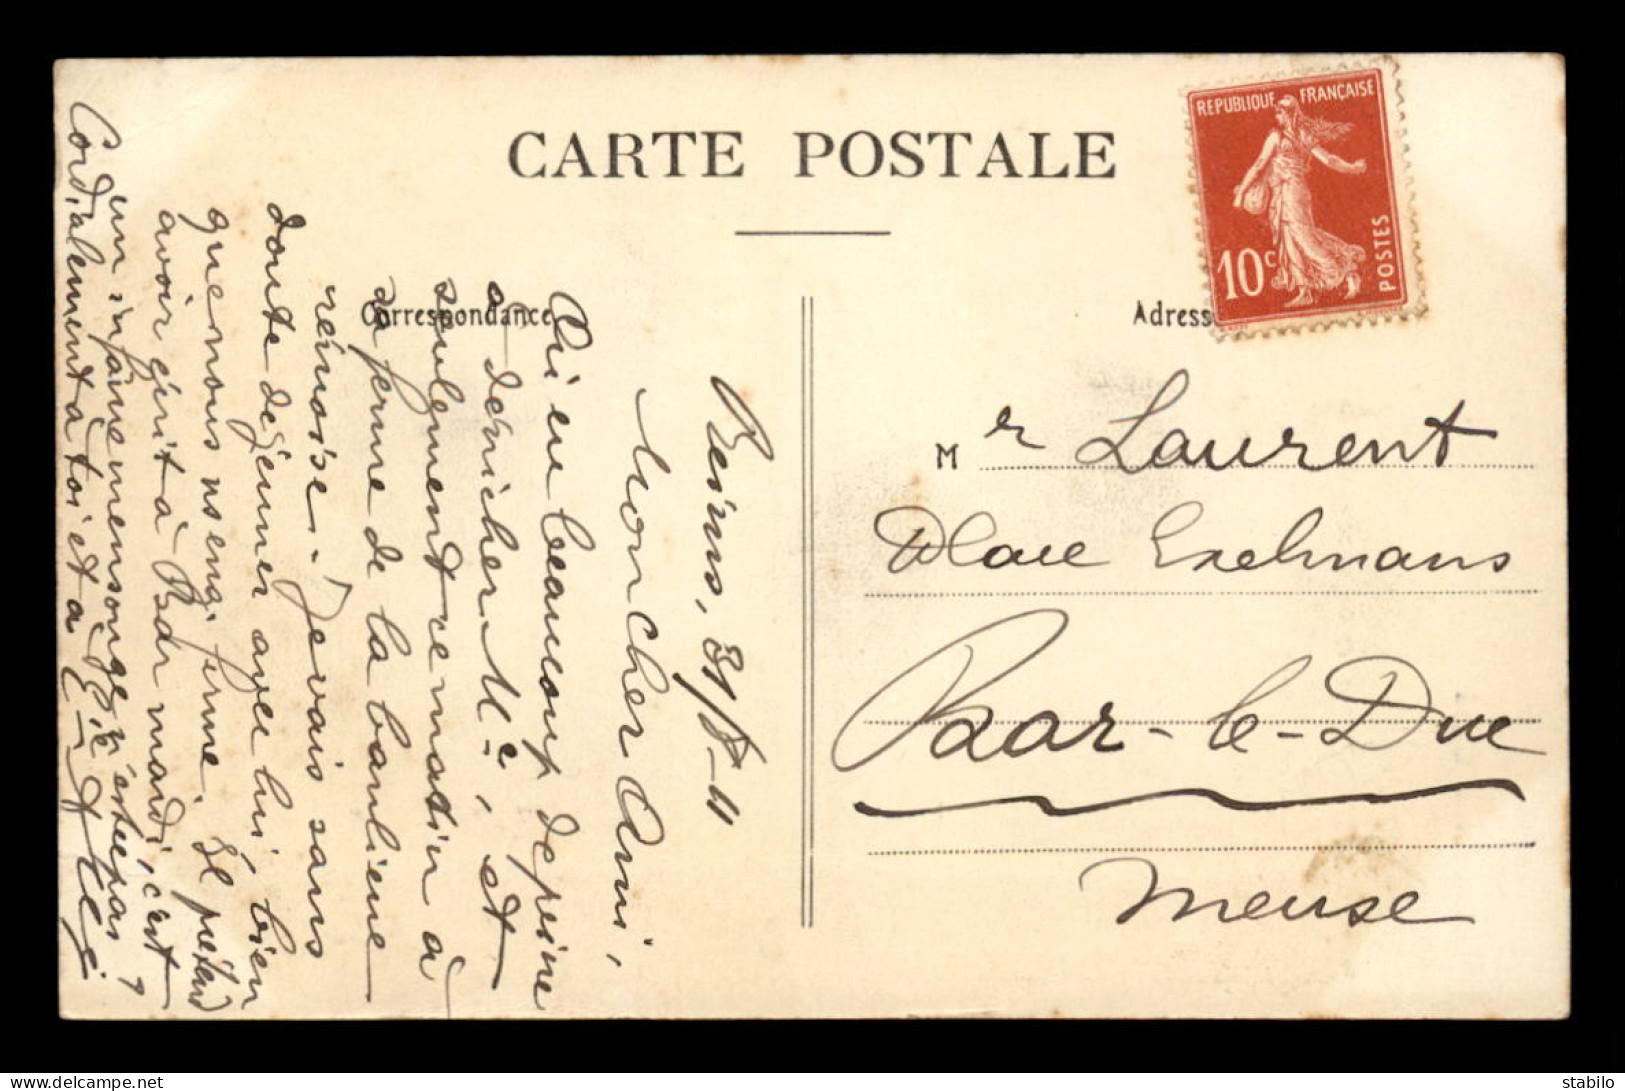 CARTE POSTALE
REPUBLIQUE FRANÇAISE
10c
POSTES
Correspondance
Adress
Reims, 31/8-11
Mon cher Ami,
Ai eu beaucoup de peine
à dénicher Mc, et
seulement ce matin à
sa ferme de la banlieue
rémoise. Je vais sans
doute déjeuner avec lui, bien
que nous ns eng. ferme. Il prétend
avoir écrit à Bar mardi, c'est
un infâme mensonge n'est-ce pas ?
Cordialement à toi et à
Mr Laurent
Place Exelmans
Bar-le-Duc
Meuse
delcampe.net
stabilo